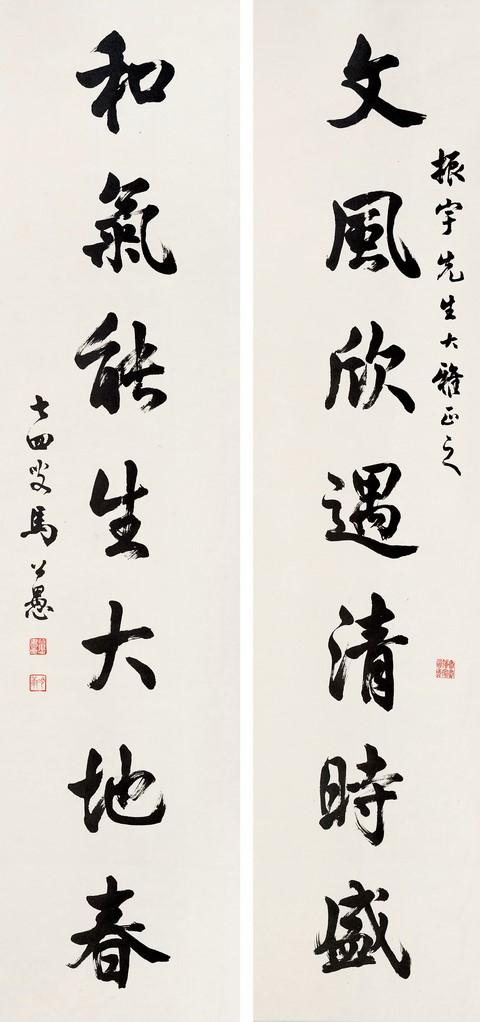 振宇先生大雅正之
文風欣遇清時盛
和氣能生大地春
七四叟馬公愚